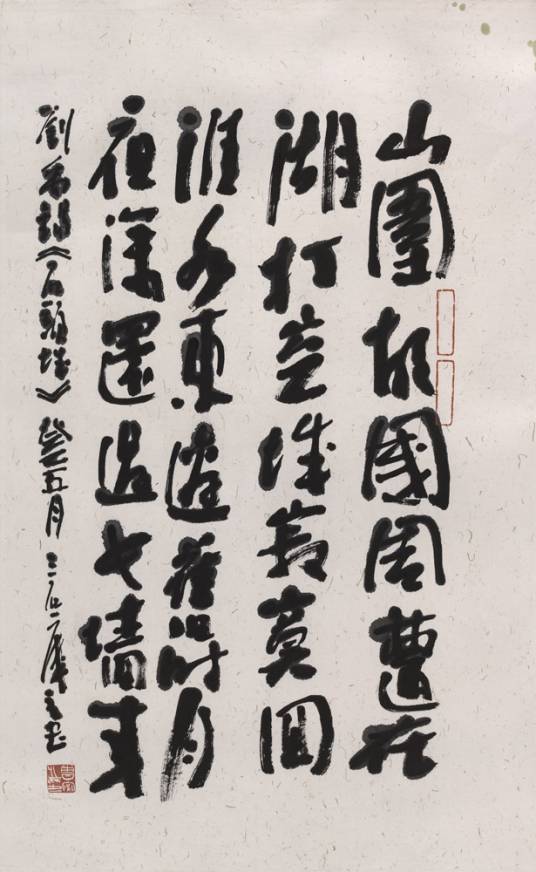 山圍故國周遭在
潮打空城寂寞回
淮水東邊舊時月
夜深還過女墻来
劉禹錫《石頭城》 癸巳五月 三石